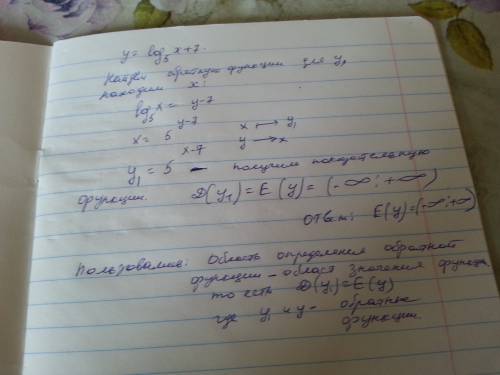 y = log₅ x + 7.
Найдем обратную функции для y,
находим x:
log₅ x = y-7
x = 5^(y-7) x ⟼ y₁
y ⟶ x
y₁ = 5^(x-7) – получим показательную
функции. D(y₁) = E(y) = (-∞; +∞)
Ответ: E(y)=(-∞;+∞)
Пользовались: Область определения обратной
функции – област значения функции,
то есть D(y₁)=E(y)
где y₁ и y – обратные
функции.